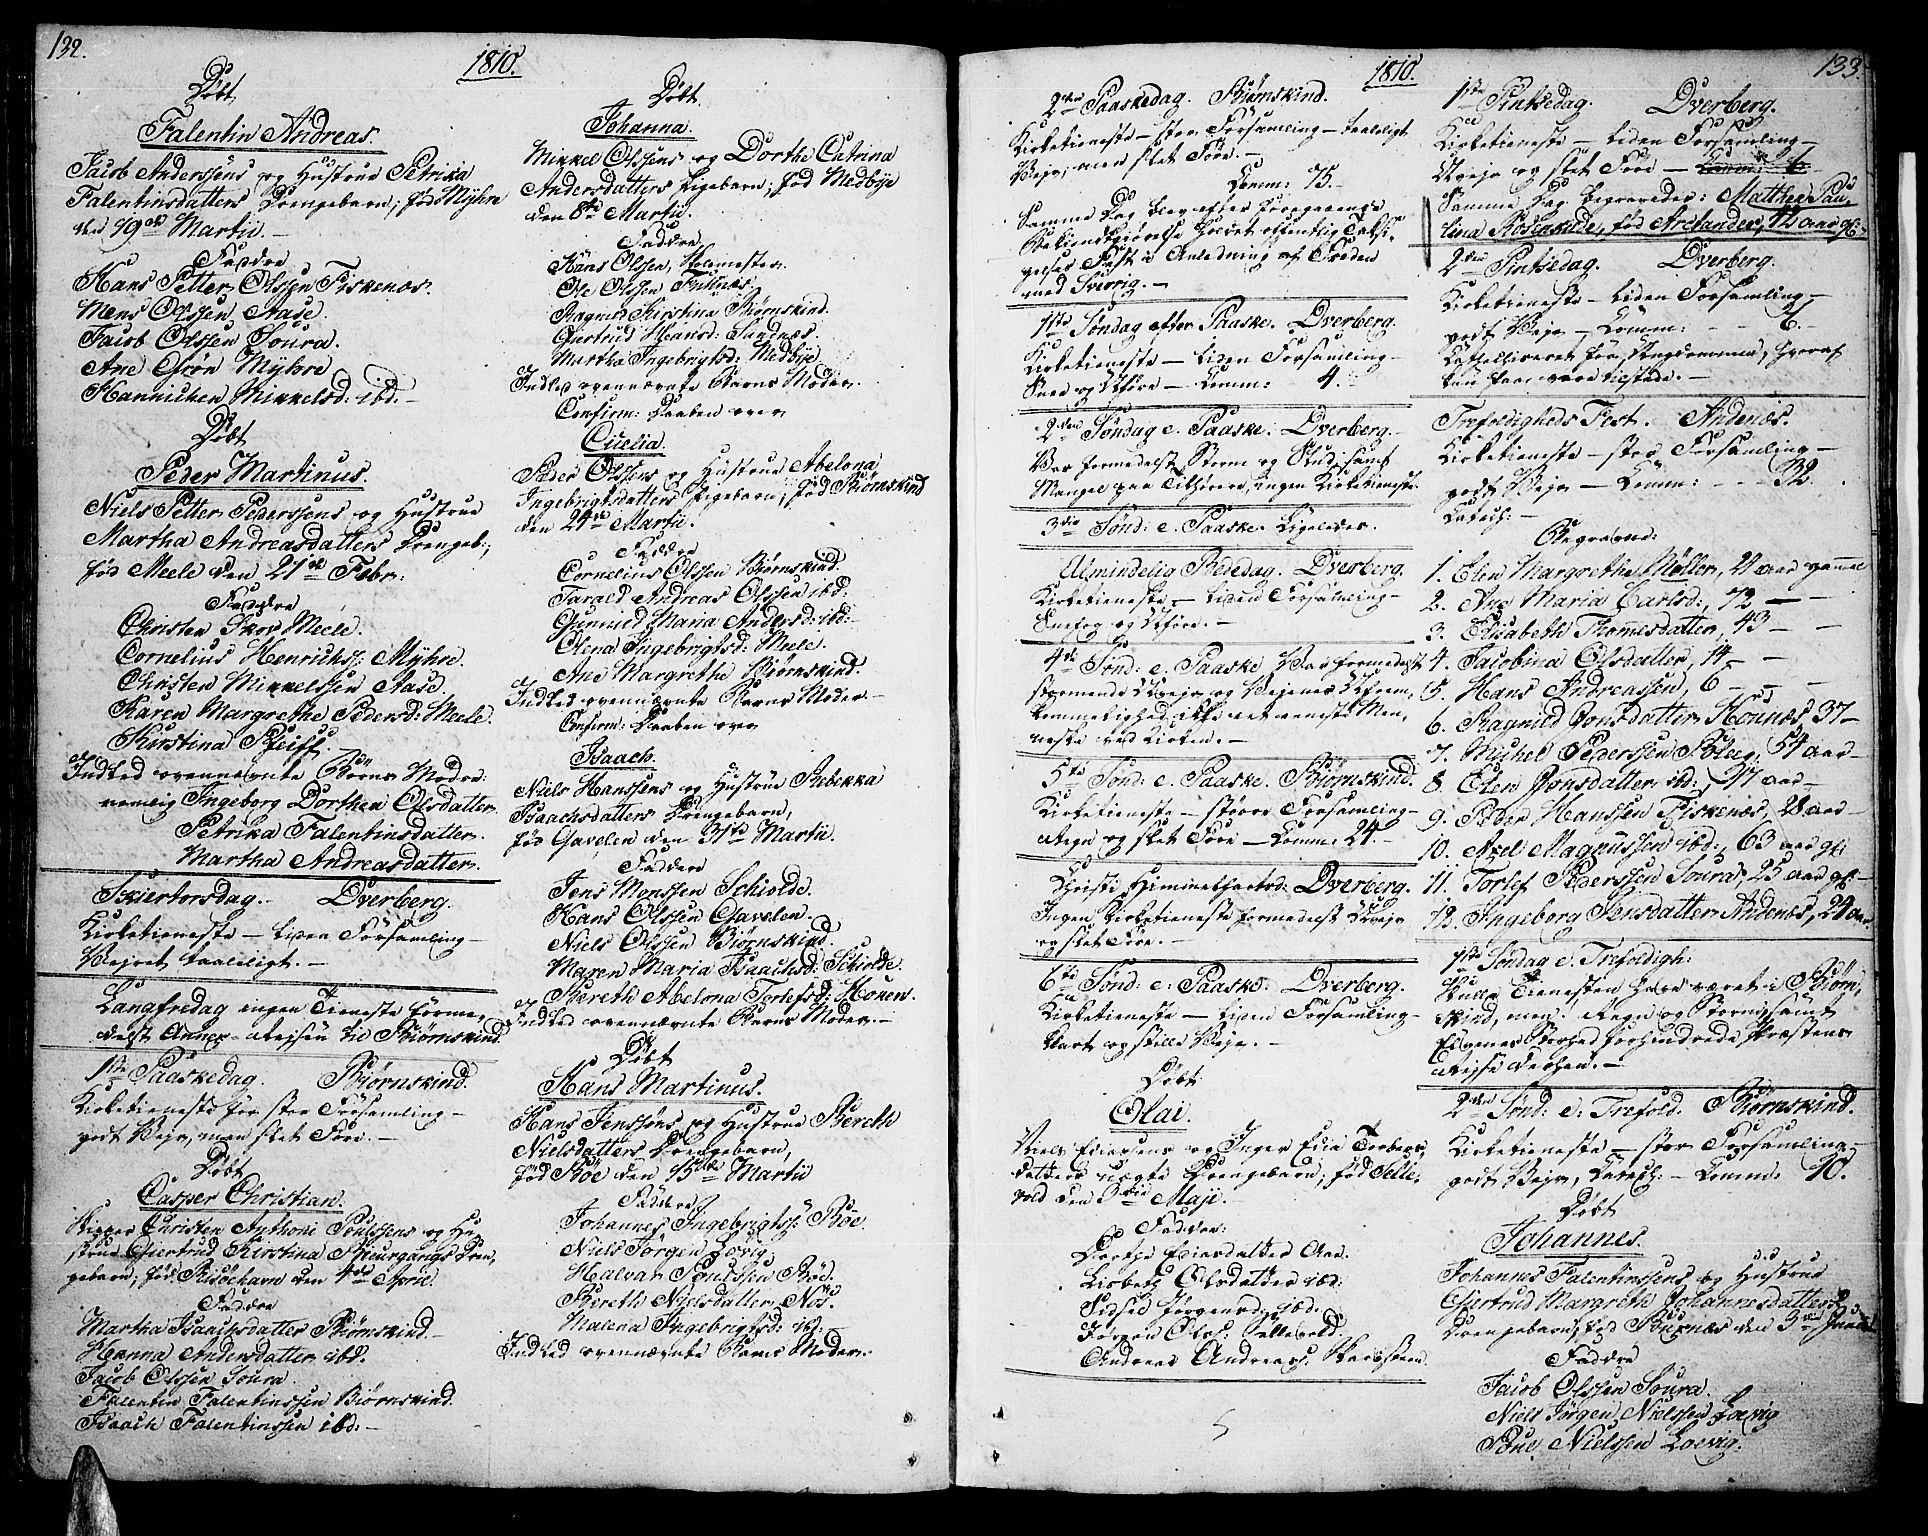 132.
1810.
Døbt
Falentin Andreas.
Jacob Anderssens og Hustrue Petrika
Falentinsdatters Drengebarn; fød Myhre
den 19de Martii.
Faddre
Hans Petter Olssen Fiskenæs.
Mons Olssen Aase.
Jacob Olssen Soura.
Ane Grøn Myhre
Hannichen Mikkelsd: ibd:
Døbt
Peder Martinus.
Niels Petter Pederssens og Hustrue
Martha Andreasdatters Drengeb:,
fød Meele den 21de Febr:
Faddre
Christen Skov Meele.
Cornelius Henrichs: Myhre.
Christen Mikkelssen Aase.
Karen Margrethe Pedersd: Meele.
Kirstina Pfeiff.
Indled ovennævnte Børns Mødre:
nemlig Ingeborg Dorthea Olsdatter
Petrika Falentinsdatter.
Martha Andreasdatter.
Skiertorsdag. Dverberg.
Kirketieneste – liden Forsamling –
Vejret taaleligt. –
Langfredag ingen Tieneste forme,
delst Annex-Rejsen til Biørnskind.
1ste Paaskedag. Biørnskind.
Kirketieneste for stor Forsamling –
godt Vejr, men slet Føre. –
Døbt
Casper Christian.
Skipper Christen Anthoni Poulssens og Hu,
strue Giertrud Kirstina Neurgangs Dren,
gebarn; fød Risøehavn den 4de April.
Faddre
Martha Isaachsdatter Biørnskind. –
Hanna Andersdatter ibd.
Jacob Olssen Soura
Falentin Falentinssen Biørnskind.
Isaach Falentinssen ibd: –
Døbt
Johanna.
Mikkel Olssens og Dorthe Catrina
Andersdatters Pigebarn; fød Medbye
den 8de Martii.
Faddre
Hans Olssen, Skolemester.
Ole Olssen Tullnæs.
Kirstina Biørnskind.
Giertrud Hansd: Sandnæs.
Martha Ingebrigtsd: Medbye
Indled ovennævnte Barns Moder.
Confirm: Daaben over
Cicelia.
Peder Olssens og Hustrue Abelona
Ingebrigtsdatters Pigebarn; fød Biørnskind
den 24de Martii.
Faddre
Cornelius Olssen Biørnskind.
Tarald Andreas Olssen ibd:
Gunnild Maria Andersd: ibd:
Olena Ingebrigtsd: Meele.
Ane Margrethe Biørnskind.
Indled ovennævnte Barns Moder –
Confirm: Daaben over
Isaach.
Niels Hanssens og Hustrue Rebekka
Isaachsdatters Drengebarn,
fød Gavelen den 31te Martii.
Faddere
Jens Monssen Schiolde.
Hans Olssen Gavelen.
Niels Olssen Biørnskind.
Maren Maria Isaachsd: Schiolde.
Bereth Abelona Torlefsd: Mouen.
Indled ovennævnte Barns Moder. –
Døbt
Hans Martinus.
Hans Jenssøns og Hustrue Bereth
Nielsdatters Drengebarn,
fød Bøe den 15de Martii
Faddere
Johannes Ingebrigts: Bøe.
Niels Jørgen Lovig.
Halvar Poulssen Bøe.
Bereth Nielsdatter Nøs.
Malena Ingebrigtsd: ib: –
Indled ovennævnte Barns Moder.
1810.
133.
2den Paaskedag. Biørnskind.
Kirketieneste – stor Forsamling – taaleligt
Vejr, men slet Føre. –
Comm: 75. –
Samme Dag blev efter foregaaende
Bekiendtgiørelse holdet offentlig Taksi,
gelses Fest i Anledning af Freden
med Sverrig. –
1ste Søndag efter Paaske. Dverberg.
Kirketieneste – liden Forsamling –
Snee og Uføre – Comm: 4.
2den Søndag e. Paaske: Dverberg.
Var formedelst Storm og Slud, samt
Mangel paa Tilhørere, ingen Kirketieneste.
3die Sønd: e. Paaske. Ligeledes.
Almindelig Bededag. Dverberg.
Kirketieneste – liden Forsamling –
Snefog og Uføre. –
4de Sønd: e. Paaske Var formedelst
stormende Uvejr og Vejenes Ufrem,
kommelighed ikke et eneste Men,
neske ved Kirken. –
5te Sønd: e. Paaske. Biørnskind.
Kirketieneste – større Forsamling –
Regn og slet Føre – Comm: 24. –
Christi Himmelfartsd: Dverberg.
Ingen Kirketieneste formedelst Uvejr
og slet Føre. –
6te Sønd: e: Paaske: Dverberg.
Kirketieneste – liden Forsamling –
klart og stille Vejr. –
Døbt
Olai.
Niels Edisens og Inger Edia Torbers,
datters uægte Drengebarn; fød Selle,
vold den 3die Maji.
Faddere:
Dorthe Edisdatter Aae.
Lisbeth Olsdatter ibd:
Sidsel Jørgensd: ibd:
Jørgen Ols: Sellevold.
Andreas Andreass: Skarsteen.
1ste Pintsedag. Dverberg.
Kirketieneste – liden Forsamling –
Uvejr og slet Føre – Comm: 6.
Samme Dag begravedes: Matthea Pau,
lina Rosenkilde, fød Arctander, 12 aar gl:
2den Pintsedag. Dverberg.
Kirketieneste – liden Forsamling –
godt Vejr – Comm: – – 6. –
Catechiseret for Ungdommen, hvoraf
kun faae vare tilstede. –
Trefoldigheds Fest. Andenæs.
Kirketieneste – stor Forsamling –
godt Vejr – Comm: – – 32.
Catech: –
Begravne:
1. Elen Margrethe Møller, 21 aar gammel
2. Ane Maria Carlsd:, 72 – –
3. Elisabeth Thomesdatter, 43 – –
4. Jacobina Olsdatter, 14 – –
5. Hans Andreassen, 6 – –
6. Ragnild Jonsdatter Hounæs 37 –
7. Michel Pederssen Bleeg, 54 aar –
8. Elen Jonsdatter ibd:, 27 aar –
9. Peder Hanssen Fiskenæs, 28 aar –
10. Axel Magnussen ibd:, 63 aar gl:
11. Torlef Pederssen Soura, 25 aar gl: –
12. Ingeborg Jensdatter Andenæs, 24 aar
1ste Søndag e. Trefoldigh:
Skulle Tienesten have været i Biørn,
skind, men: Regn og Storm, samt
Elvenes Storhed forhindrede Præstens
Rejse derhen. –
2den Sønd: e. Trefold. Biørnskind.
Kirketieneste – stor Forsamling –
godt Vejr, Catech: – Comm: 90.
Døbt
Johannes.
Johannes Falentinssens og Hustrue
Giertrud Margreth Johannesdatters
Drengebarn; fød Buxnæs den 3die Junii
Faddre
Jacob Olssen Soura.
Niels Jørgen Nielssen Loevig
Poue Nielssen Loevig.